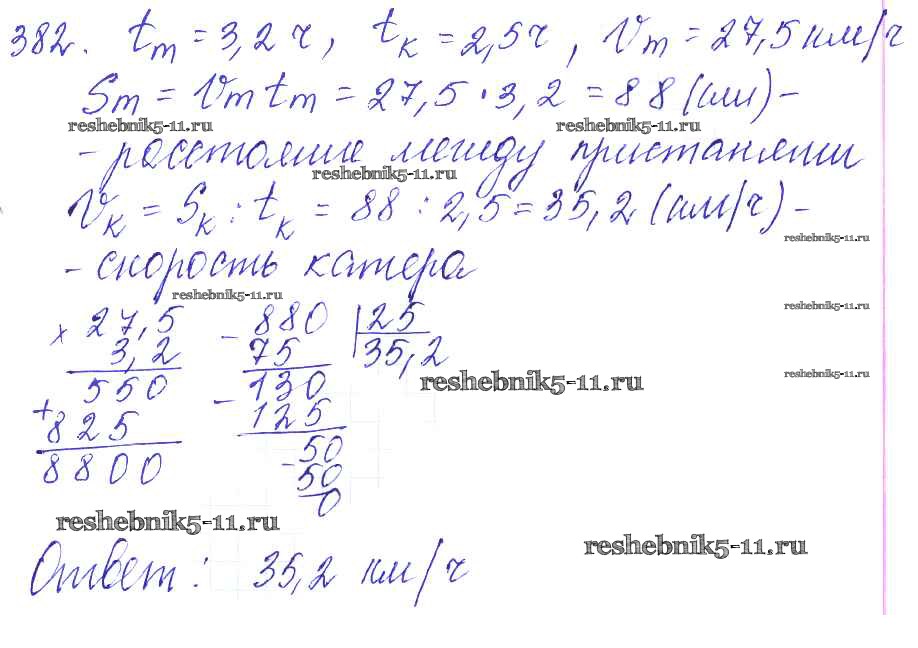 382. tт = 3,2 ч, tк = 2,5 ч, Vт = 27,5 км/ч
Sт = Vт tт = 27,5 · 3,2 = 88 (км) -
reshebnik5-11.ru reshebnik5-11.ru
- расстояние между пристанями
reshebnik5-11.ru
Vк = Sк : tк = 88 : 2,5 = 35,2 (км/ч) -
reshebnik5-11.ru
- скорость катера
reshebnik5-11.ru
reshebnik5-11.ru
× 27,5 - 880 | 25
3,2 75 35,2
reshebnik5-11.ru
reshebnik5-11.ru
550 - 130
+ 825 125
8800 - 50
50
0
reshebnik5-11.ru
reshebnik5-11.ru
Ответ: 35,2 км/ч